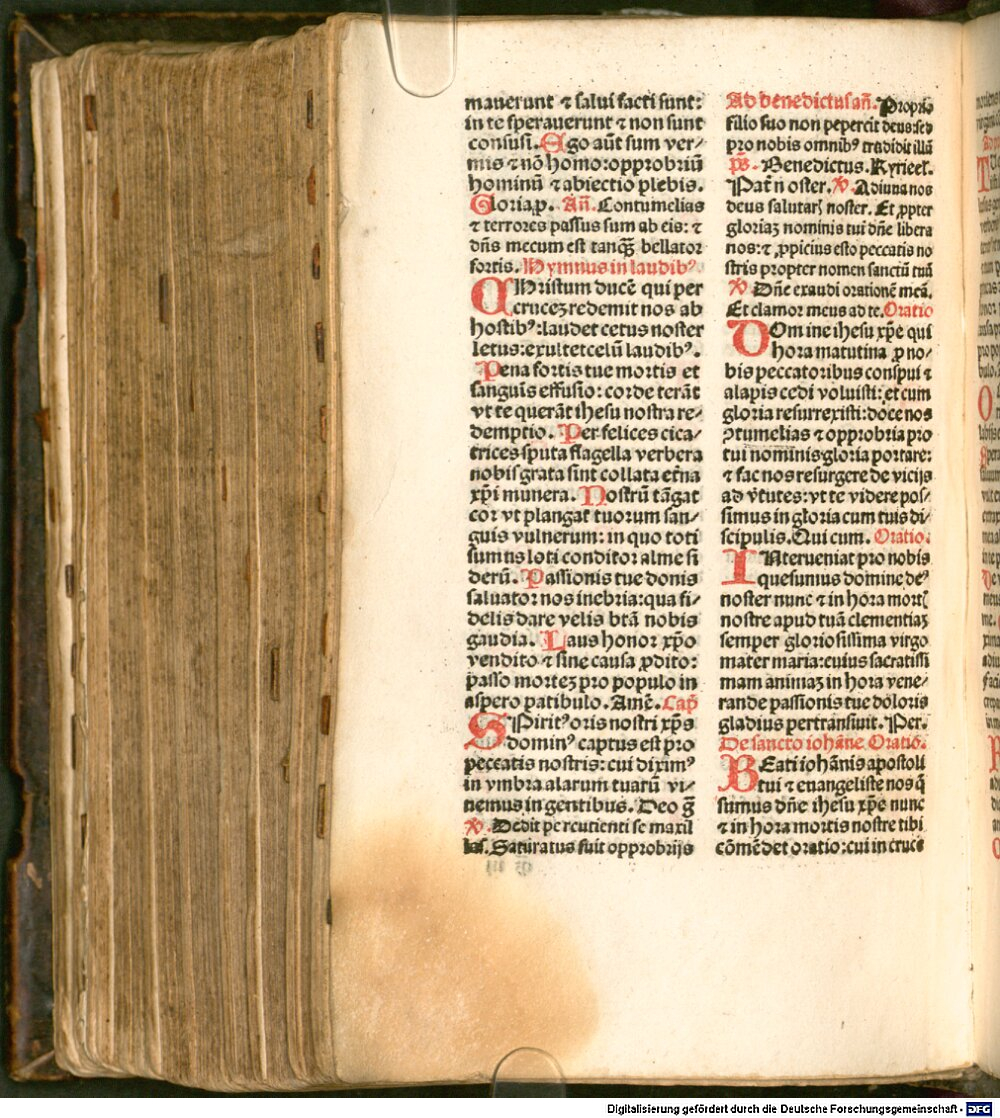 mauerunt ⁊ salui facti sunt:
in te sperauerunt ⁊ non sunt
confusi. Ego aūt sum ver⸗
mis ⁊ nō homo: opprobriū
hominū ⁊ abiectio plebis.
Gloria p̄. Añ. Contumelias
⁊ terrores passus sum ab eis: ⁊
dñs mecum est tanqȝ bellator
fortis. Hymnus in laudibꝰ
CHristum ducē qui per
crucez redemit nos ab
hostibꝰ: laudet cetus noster
letus: exultet celū laudibꝰ.
Pena fortis tue mortis et
sanguis effusio: corde terāt
vt te querāt ihesu nostra re⸗
demptio. Per felices cica⸗
trices sputa flagella verbera
nobis grata sint collata et̄na
xp̄i munera. Nostrū tāgat
cor vt plangat tuorum san⸗
guis vulnerum: in quo toti
sumus loti conditor alme si
derū. Passionis tue donis
saluator nos inebria: qua fi⸗
delis dare velis btā nobis
gaudia. Laus honor xp̄o
vendito ⁊ sine causa ꝓdito:
passo mortez pro populo in
aspero patibulo. Amē. Cap̄
SPiritꝰ oris nostri xp̄s
dominꝰ captus est pro
peccatis nostris: cui diximꝰ
in vmbra alarum tuarū vi⸗
uemus in gentibus. Deo ḡ
℣. Dedit percutienti se maxil
las. Saturatus fuit opprobrijs
Ad benedictus añ. Proprio
filio suo non pepercit deus: sed
pro nobis omnibꝰ tradidit illū
p̄s. Benedictus. Kyrieel.
Pat̄ noster. ℣. Adiuua nos
deus salutarꝭ noster. Et ꝓpter
gloriaȝ nominis tui dñe libera
nos: ⁊ ꝓpicius esto peccatis no
stris propter nomen sanctū tuū
℣. Dñe exaudi orationē meā.
Et clamor meus ad te. Oratio
DOmine ihesu xp̄e qui
hora matutina ꝓ no⸗
bis peccatoribus conspui ⁊
alapis cedi voluisti: et cum
gloria resurrexisti: doce nos
ꝯtumelias ⁊ opprobria pro
tui nominis gloria portare:
⁊ fac nos resurgere de vicijs
ad v̄tutes: vt te videre pos⸗
simus in gloria cum tuis di⸗
scipulis. Qui cum. Oratio.
INterueniat pro nobis
quesumus domine deꝰ
noster nunc ⁊ in hora mortꝭ
nostre apud tuā clementiaȝ
semper gloriosissima virgo
mater maria: cuius sacratissi
mam animaȝ in hora vene⸗
rande passionis tue doloris
gladius pertransiuit. Per.
De sancto iohāne. Oratio.
BEati iohānis apostoli
tui ⁊ euangeliste nos q̄
sumus dñe ihesu xp̄e nunc
⁊ in hora mortis nostre tibi
cōmēdet oratio: cui in cruce
Digitalisierung gefördert durch die Deutsche Forschungsgemeinschaft - DFG